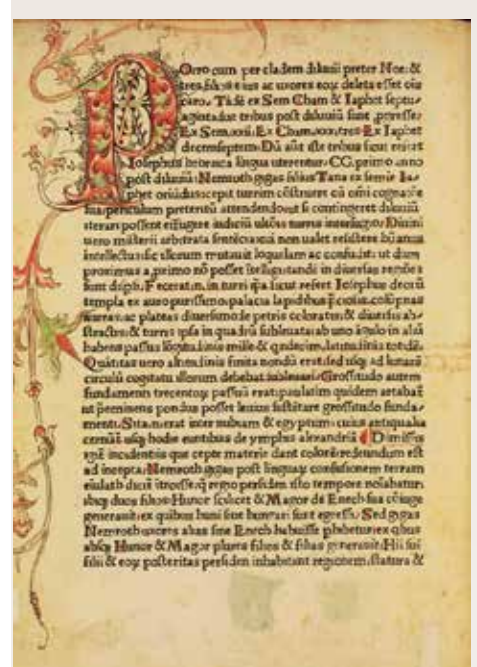 POrro cum per cladem diluuii preter Noe: &
tres filios eius ac uxores eoꝝ deleta esset oīs
caro. Tādē ex Sem Cham & Iaphet septu-
agintaduę tribus post diluuiū sunt
Ex Sem Ex Cham tres Ex Iaphet
decemseptem: Dū aūt iste tribus sicut
Iosephus hebraica lingua uterentur CC. primo anno
post diluuiū: Nemroth gigas filius Tana ex semie Ia-
phet oriūdus cepit turrim cōstruere cū omi cognatiōe
sua: periculum pretentū attendendo: ut si contingeret diluuiū
iterari possent effugere indiciū ultōis turris interius: Diuini
uero misterii arbitrata sentēcia: cui non ualet resistere
intellectu: sic illorum mutauit loquelam ac confudit: ut dum
proximus a primo nō posset intelligi: tandē in diuersas
sunt Fecerāt in turri sicut refert Iosephus deorū
templa ex auro purissimo: palacia lapidibus columpnas
aureas: ac plateas diuersimode petris coloratis
& turris ipsa in quadrū subleuata: ab uno āgulo in aliū
habens passus lōgitudinis mille & quidecim: latitudinis
Quātitas uero altitudinis finita nondū erat: sed usq ad lunarē
circulū cogitatu illorum debebat subleuari: Grossitudo autem
fundamenti trecentoꝝ passuū erat: paulatim quidem artabat
ut p̄eminens pondus posset lexius sustētare grossitudo funda-
menti: Sita erat inter nubiam & egyptum: cuius antiqualia
usq hodie euntibus de alexandriā Dimissis
incidentiis que cepte materie dant colorē: redeundum est
ad incepta: Nemroth gigas post linguaꝝ confusionem terram
euilath regio persidem isto tempore
duos filios Hunor scilicet & Magor de Enech sua cōiuge
generauit: ex quibus huni siue hungari sunt egressi. Sed gigas
Nemroth uxores alias sine Enech habuisse
absq Hunor & Magor plures filios & filias generauit: Hii sui
filii & eoꝝ posteritas persidem inhabitant regionem: statura &